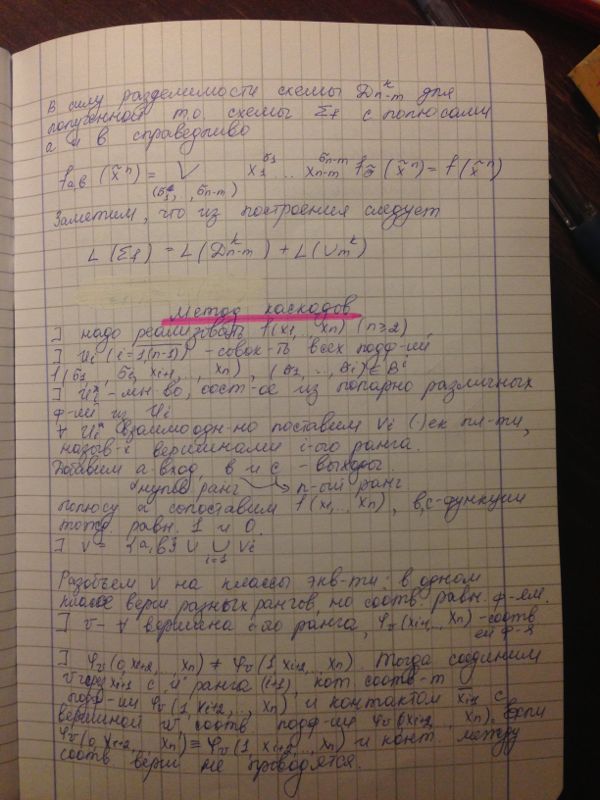 В силу разделимости схемы D^k_{n-m} для
полученной т.о. схемы Σ_f с полюсами
a и в справедливо
f_{a,в} (x̃^n) = ∨_{(σ_1, .., σ_{n-m})} x_1^{σ_1} ... x_{n-m}^{σ_{n-m}} f_{σ̃} (x̃^n) = f(x̃^n)
Заметим, что из построения следует
L(Σ_f) = L(D^k_{n-m}) + L(U_m^k)
Метод каскадов
] надо реализовать f(x_1, .., x_n) (n≥2)
] U_i (i=1,(n-1)) - совок-ть всех подф-ий
f(σ_1, .., σ_i, x_{i+1}, .., x_n), (σ_1, .., σ_i) ∈ B^i
] U_i^* - мн-во, сост-ое из попарно различных
ф-ий из U_i
∀ U_i^* взаимоодн-но поставим V_i (·)ек пл-ти,
назыв-х вершинами i-ого ранга.
Добавим a-вход, в и с - выходы.
нулев ранг n-ый ранг
полюсу a сопоставим f(x_1, .., x_n), в,с-функции
тожд равн. 1 и 0.
] V = {a,в} ∪ ∪_{i=1} V_i
Разобъем V на классы экв-ти: в одном
классе верш разных рангов, но соотв. равн. ф-ям.
] v - ∀ вершина i-ого ранга, φ_v(x_{i+1}, .., x_n) - соотв
ей ф-я
] φ_v(0, x_{i+2}, .., x_n) ≠ φ_v(1, x_{i+2}, .., x_n). Тогда соединим
v через x_{i+1} с u ранга (i+1), кот. соотв-т
подф-ии φ_v(1, x_{i+2}, .., x_n) и контактом x̄_{i+1} с
вершиной w, соотв подф-ии φ_v(0, x_{i+2}, .., x_n). Если
φ_v(0, x_{i+2}, .., x_n) ≡ φ_v(1, x_{i+2}, .., x_n) и конт. между
соотв верш не проводятся.